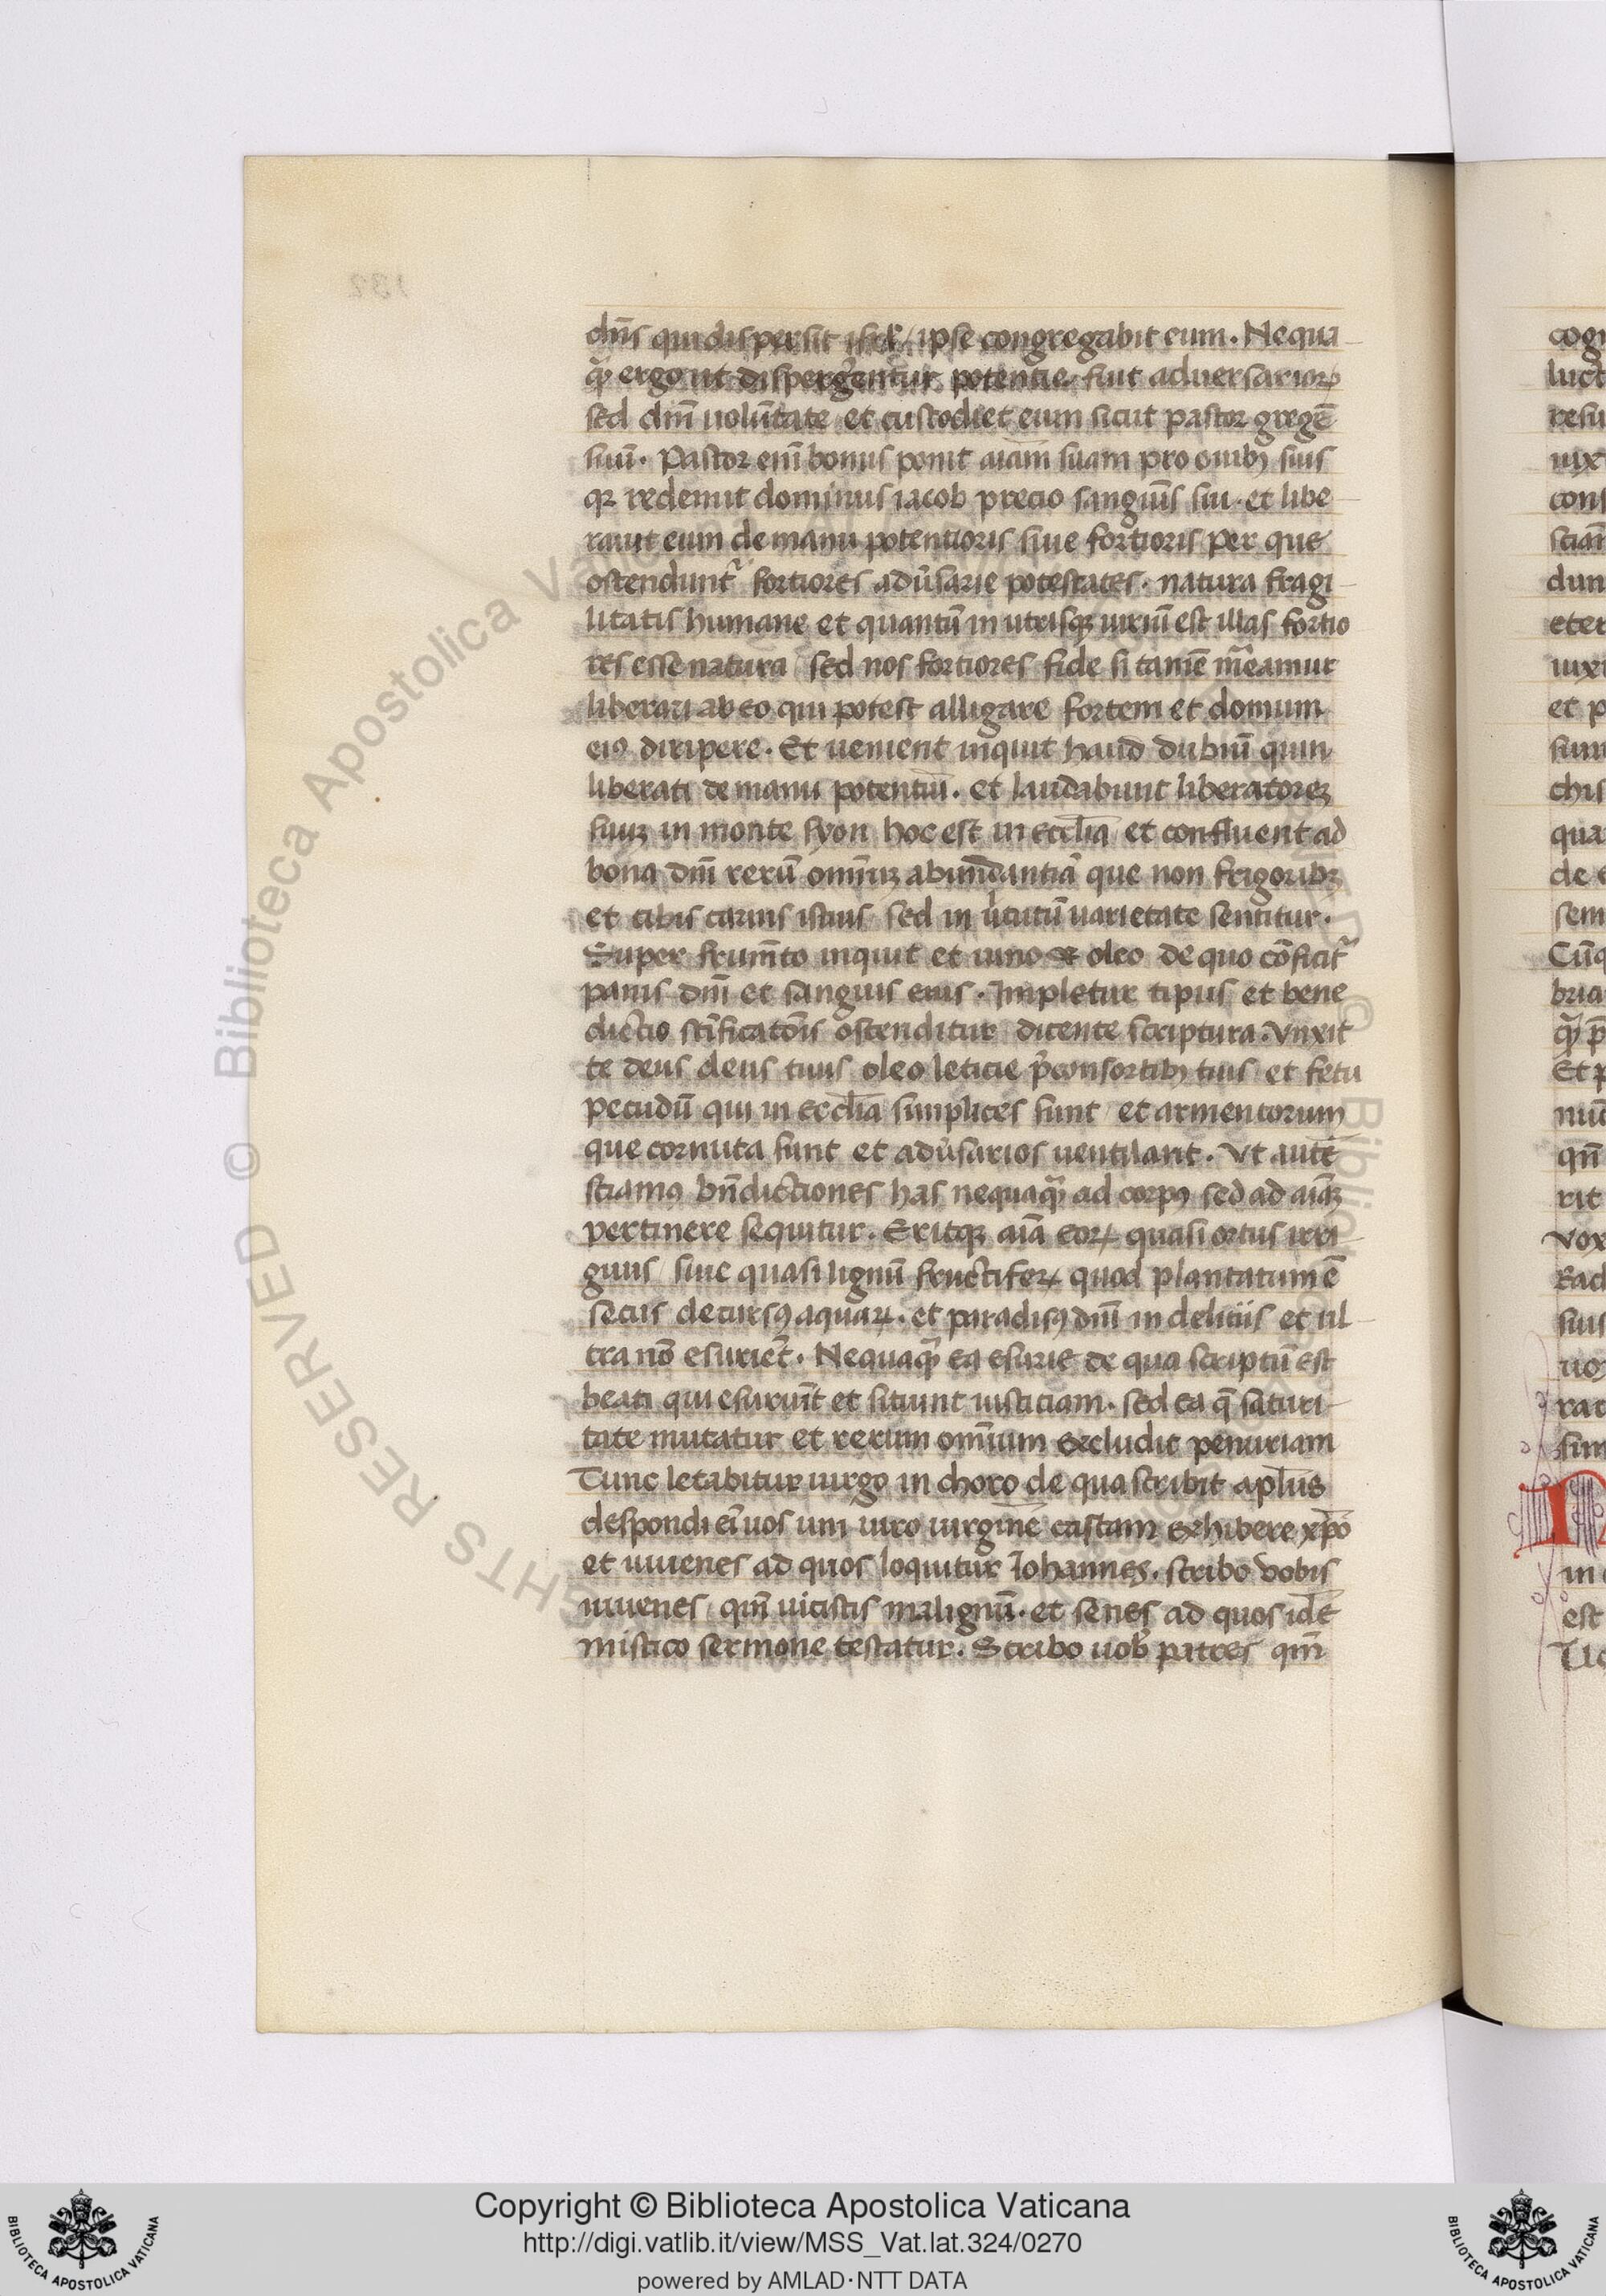 dn̄s qui dispersit isrl̄ / ipse congregabit eum. Nequa-
qͣꝫ ergo ut dispergērētur potentie fuit aduersarioꝝ
sed dn̄i uolūtate et custodiet eum sicut pastor gregē
suū. Pastor enī bonus ponit aīam suam pro ouibꝫ suis
qꝛ redemit dominus iacob precio sanguīs sui. et libe-
rauit eum de manu potentioris siue fortioris per que
ostendunt᷑ fortiores adũsarie potestates. natura fragi-
litatis humane et quantū in utrisqꝫ uiriū est illas fortio
res esse natura / sed nos fortiores fide si tamē m̄eamur
liberari ab eo qui potest alligare fortem et domum
eiꝰ diripere. Et uenient inquit haud dubiū quin
liberati de manu potentiū. et laudabunt liberatoreꝫ
suuꝫ in monte syon hoc est in eccl̄ia et confluent ad
bona dn̄i rerū om̄iuꝫ abundantiā que non frigoribꝫ
et cibis carnis istius sed in ũtutū uarietate sentitur.
Super frum̄to inquit et uino et oleo de quo cōficit᷑
panis dn̄i et sanguis eius. Impletur tipus et bene
dictio sc̄ificatōis ostenditur dicente scriptura. Vnxit
te deus deus tuus oleo leticie p̄ consortibꝫ tuis et fetu
pecudū qui in eccl̄ia simplices sunt / et armentorum
que cornuta sunt et adũsarios uentilant. Vt autē
sciamꝰ bn̄dictiones has nequaqͣꝫ ad corpꝰ sed ad aīaꝫ
pertinere sequitur. Eritqꝫ aīa eoꝝ quasi ortus irri-
guus / siue quasi lignū fructiferꝝ quod plantatum ē
secus decursꝰ aquaꝝ. et paradisꝰ dn̄i in deliciis et ul-
tra nō esuriēt. Nequaqͣꝫ ea esurie de qua scriptū est
beati qui esuriūt et sitiunt iusticiam. sed ea q̄ saturi-
tate mutatur et rerum om̄ium excludit penuriam
Tunc letabitur uirgo in choro de qua scribit apl̄us
despondi ei̅ uos uni uiro uirginē castam exhibere xp̄o
et iuuenes ad quos loquitur Iohannes. scribo vobis
iuuenes / qm̄ uicistis malignū. et senes ad quos idē
mistico sermone testatur. Scribo uob̄ patres qm̄
Copyright © Biblioteca Apostolica Vaticana
http://digi.vatlib.it/view/MSS_Vat.lat.324/0270
powered by AMLAD·NTT DATA